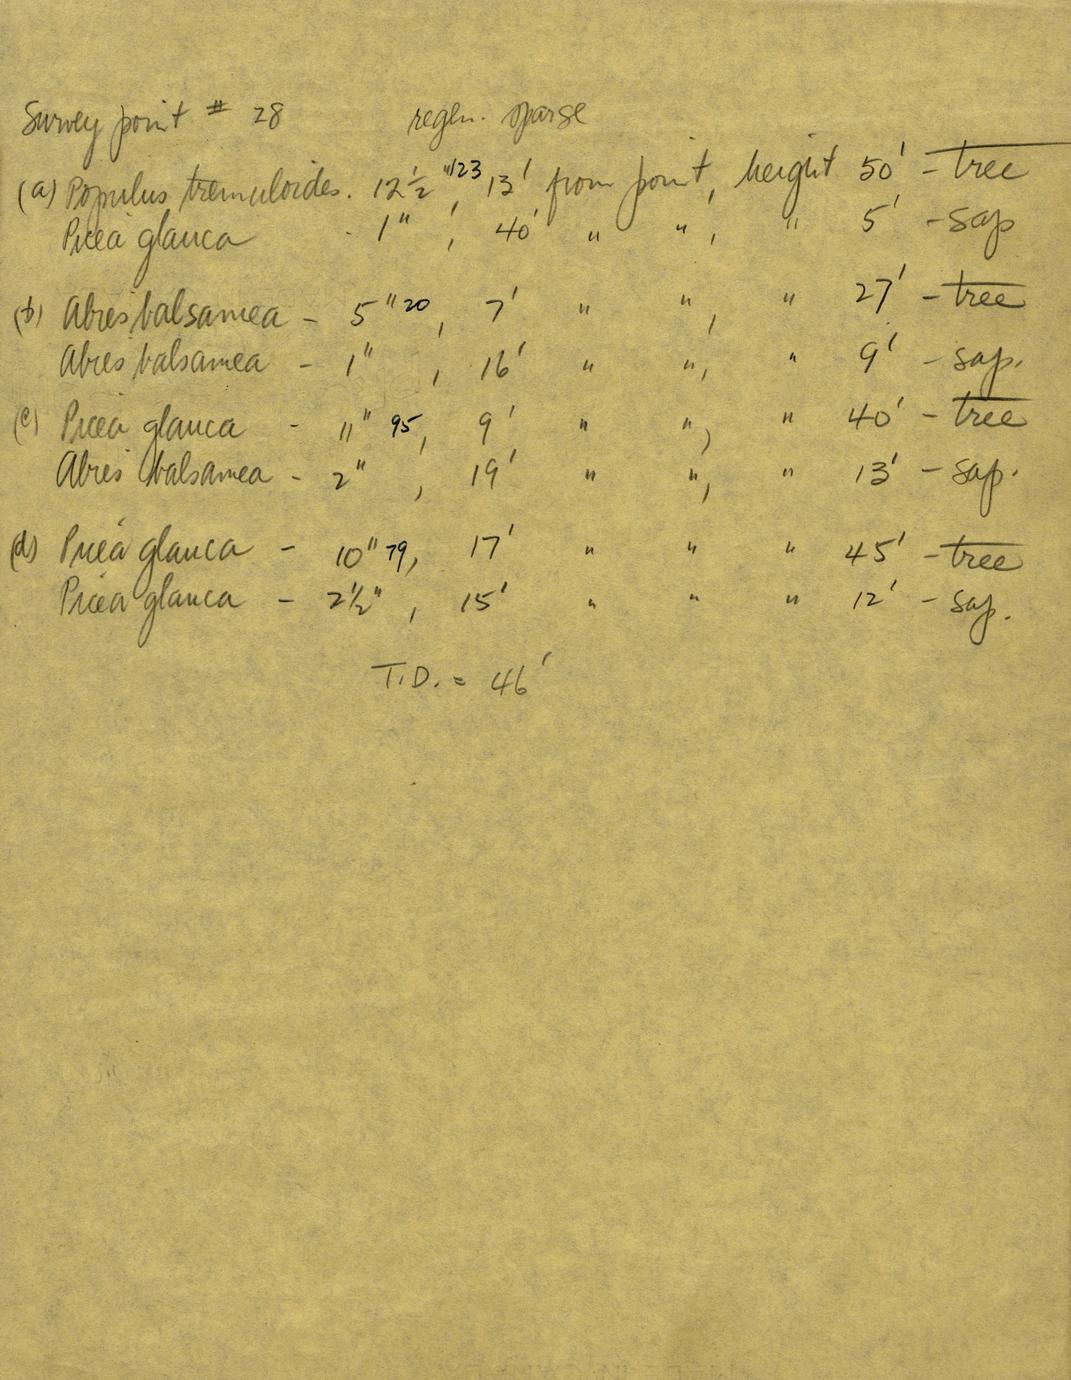 Survey point # 28 regen. sparse
(a) Populus tremuloides. 12½" 123, 13' from point, height 50' - tree
Picea glauca - 1", 40' " ", " 5' - sap
(b) Abies balsamea - 5" 20, 7' " ", " 27' - tree
Abies balsamea - 1", 16' " ", " 9' - sap.
(c) Picea glauca - 11" 95, 9' " ", " 40' - tree
Abies balsamea - 2", 19' " ", " 13' - sap.
(d) Picea glauca - 10" 79, 17' " " " 45' - tree
Picea glauca - 2½", 15' " " " 12' - sap.
T.D. = 46'